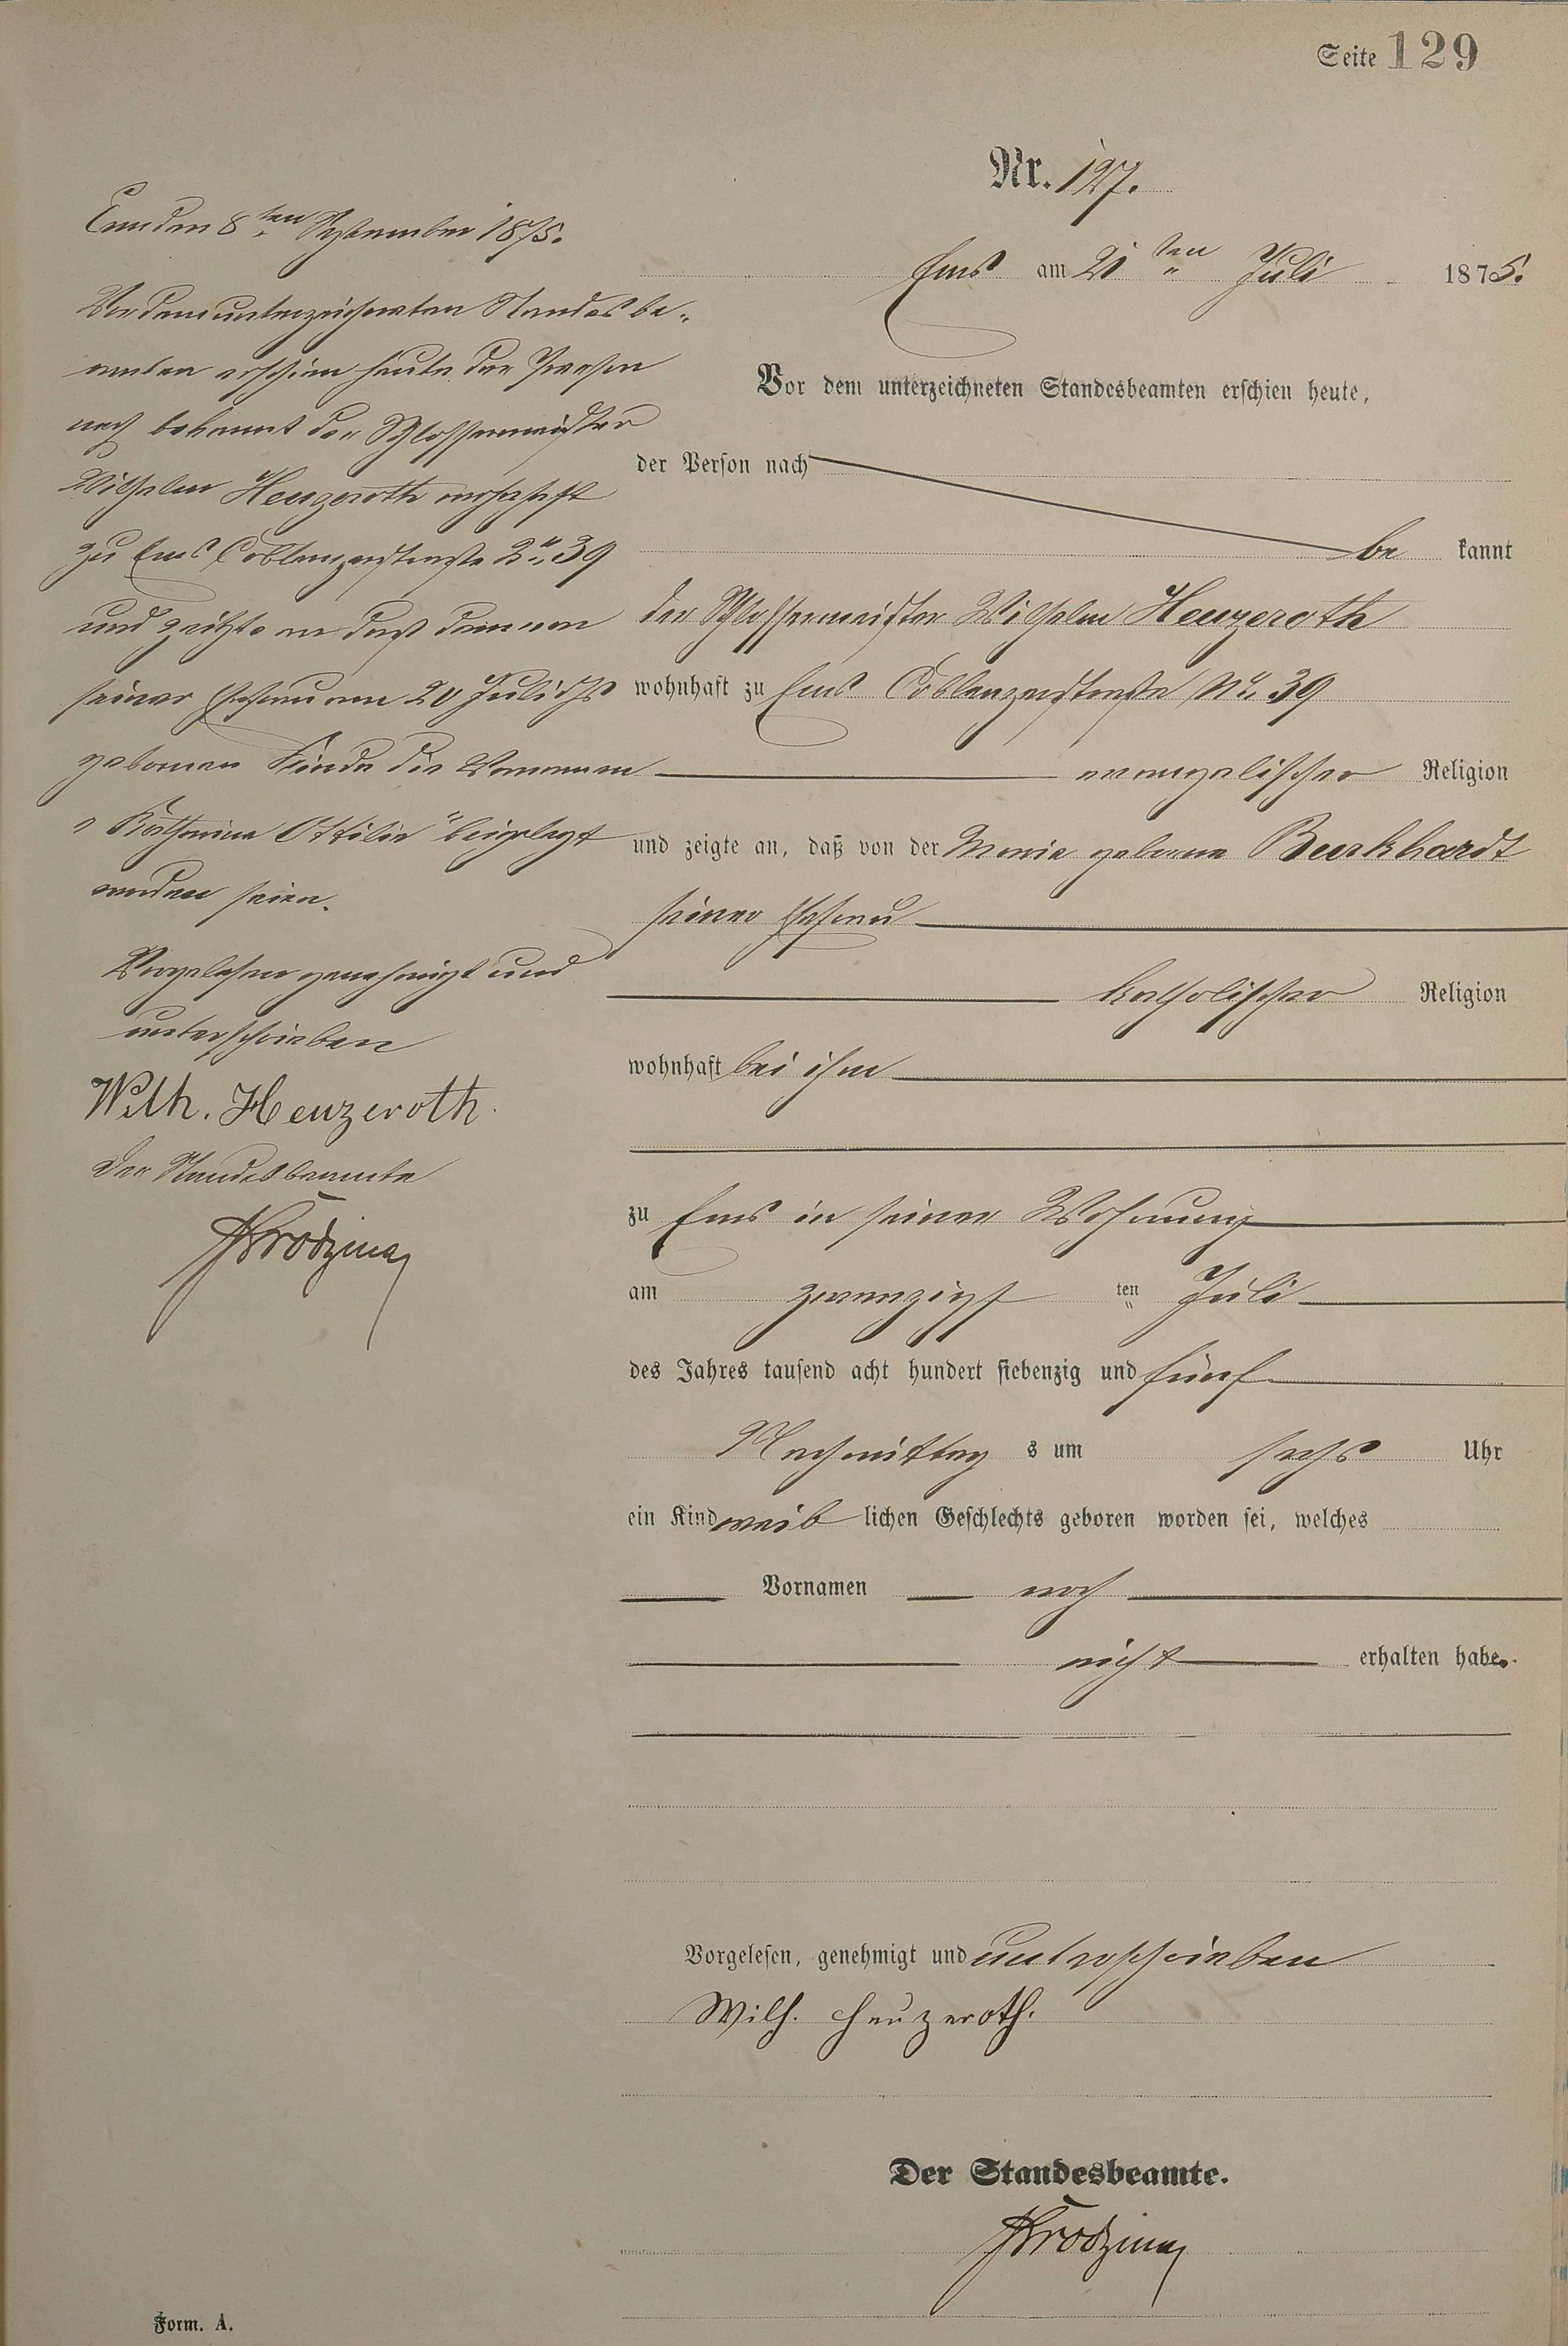 Seite 129
Nr. 127.
Ems am 21 ten Juli 1875.
Vor dem unterzeichneten Standesbeamten erschien heute,
der Person nach
be kannt
der Schlossermeister Wilhelm Heuzeroth
wohnhaft zu Ems Coblenzerstraße No. 39
evangelischer Religion
und zeigte an, daß von der Maria geborne Burkhardt
seiner Ehefrau
katholischer Religion
wohnhaft bei ihm
zu Ems in seiner Wohnung
am zwanzigsten ten Juli
des Jahres tausend acht hundert siebenzig und fünf
Nachmittag s um sechs Uhr
ein Kind weib lichen Geschlechts geboren worden sei, welches
Vornamen noch
nicht erhalten habe.
Vorgelesen, genehmigt und unterschrieben
Wilh. Heuzeroth.
Der Standesbeamte.
Form. A.
den 8ten September 1875.
Vor dem unterzeichneten Standesbe-
amten erschien heute der Person
nach bekannt der Schlossermeister
Wilhelm Heuzeroth wohnhaft
zu Ems Coblenzerstraße No. 39
und zeigte an daß dem von
seiner Ehefrau am 20 Juli
gebornen Kinde die Vornamen
"Katharina Ottilie" beigelegt
worden seien.
Vorgelesen genehmigt und
unterschrieben
Wilh. Heuzeroth.
Der Standesbeamte